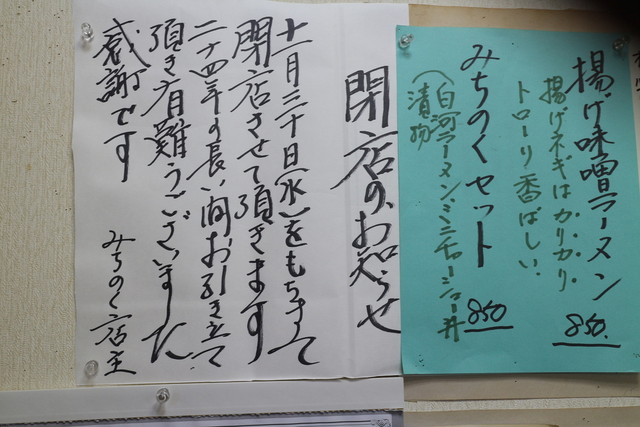 揚げ味噌ラーメン
揚げネギはカリカリ、
トローリ香ばしい、
850.
みちのくセット
(白河ラーメン、ミニチャーシュー丼
漬物
850
閉店のお知らせ
十一月三十日(水)をもちまして
閉店させて頂きます
二十四年の長い間お引き立て
頂き有難うございました
感謝です
みちのく店主